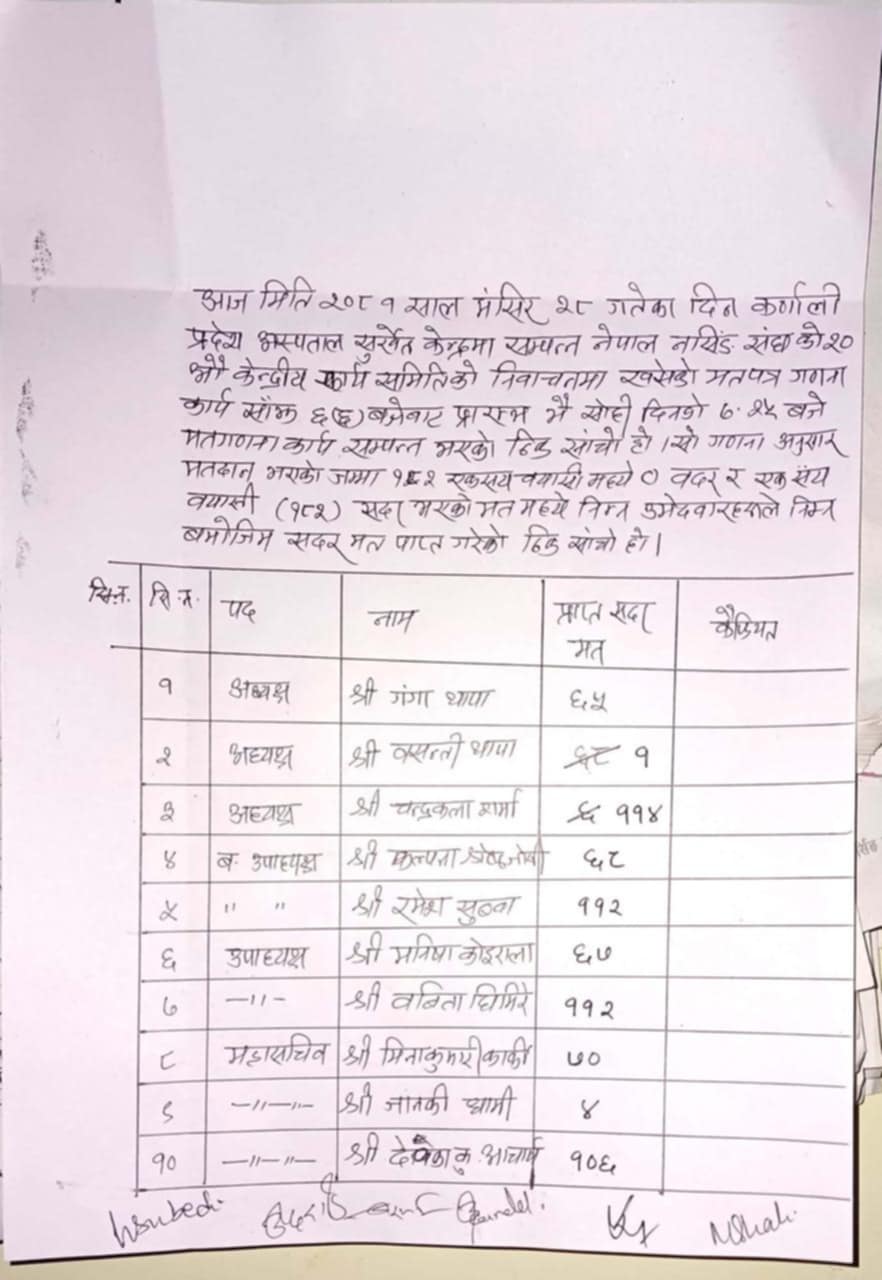 आज मिति २०८१ साल मंसिर २८ गतेका दिन कर्णाली
प्रदेश अस्पताल सुर्खेत केन्द्रमा सम्पन्न नेपाल नर्सिङ संघको २०
औ केन्द्रीय कार्य समितिको निवाचनमा खसेको मतपत्र गणना
कार्य साँझ ६(छ) बजेबाट प्रारम्भ भै सोही दिनको ७.२५ बजे
मतगणना कार्य सम्पन्न भएको ठिक साँचो हो । सो गणना अनुसार
मतदान भएको जम्मा १८२ एकसय वयासी मध्ये ० वदर र एक सय
वयासी (१८२) सदर भएको मत मध्ये निम्न उमेदवारहरुले निम्न
बमोजिम सदर मत प्राप्त गरेको ठिक साँचो हो ।
सि.न. सि.न. पद नाम प्राप्त सदर मत कैफियत
१ अध्यक्ष श्री गंगा थापा ६५
२ अध्यक्ष श्री वसन्ती थापा १
३ अध्यक्ष श्री चन्द्रकला शर्मा ११४
४ ब. उपाध्यक्ष श्री कल्पना श्रेष्ठ जोशी ६८
५ " " श्री रमेश सुब्बा ११२
६ उपाध्यक्ष श्री मनिषा कोइराला ६७
७ —"- श्री वबिता घिमिरे ११२
८ महासचिव श्री मिनाकुमारी कार्की ७०
९ —"—"— श्री जानकी धामी ४
१० —"—"— श्री कु. आचार्य १०६